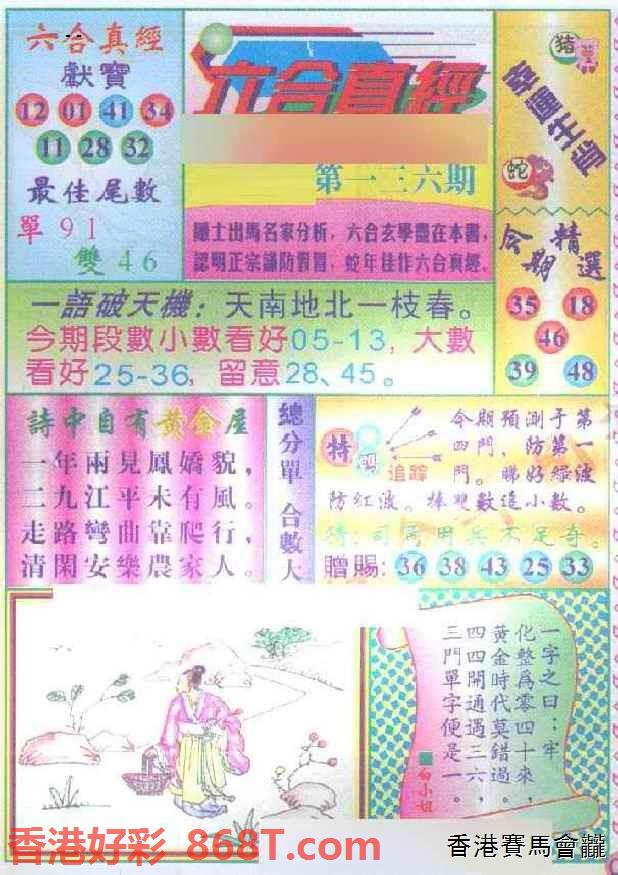 六合真經
獻寶
12 01 41 34
11 28 32
最佳尾數
單 91
雙 46
六合真經
第一三六期
隱士出馬名家分析，六合玄學盡在本書，
認明正宗謹防假冒，蛇年佳作六合真經。
豬
蛇
今期精選
35 18
46
39 48
一語破天機：天南地北一枝春。
今期段數小數看好05-13，大數
看好25-36，留意28、45。
詩中自有黃金屋
一年兩見鳳嬌貌，
二九江平未有風。
走路彎曲靠爬行，
清閑安樂農家人。
總分單 合數大
特 碼
追蹤
今期預測于第
四門，防第一
門。睇好綠波
防紅波。捧雙數追小數。
猜：司馬用兵不足奇。
贈賜：36 38 43 25 33
一字之曰：牢
化整為零四十來，
黃金時代莫錯過。
四四開通遇三六，
三門單字便是一。
白小姐
香港好彩 868T.com
香港賽馬會